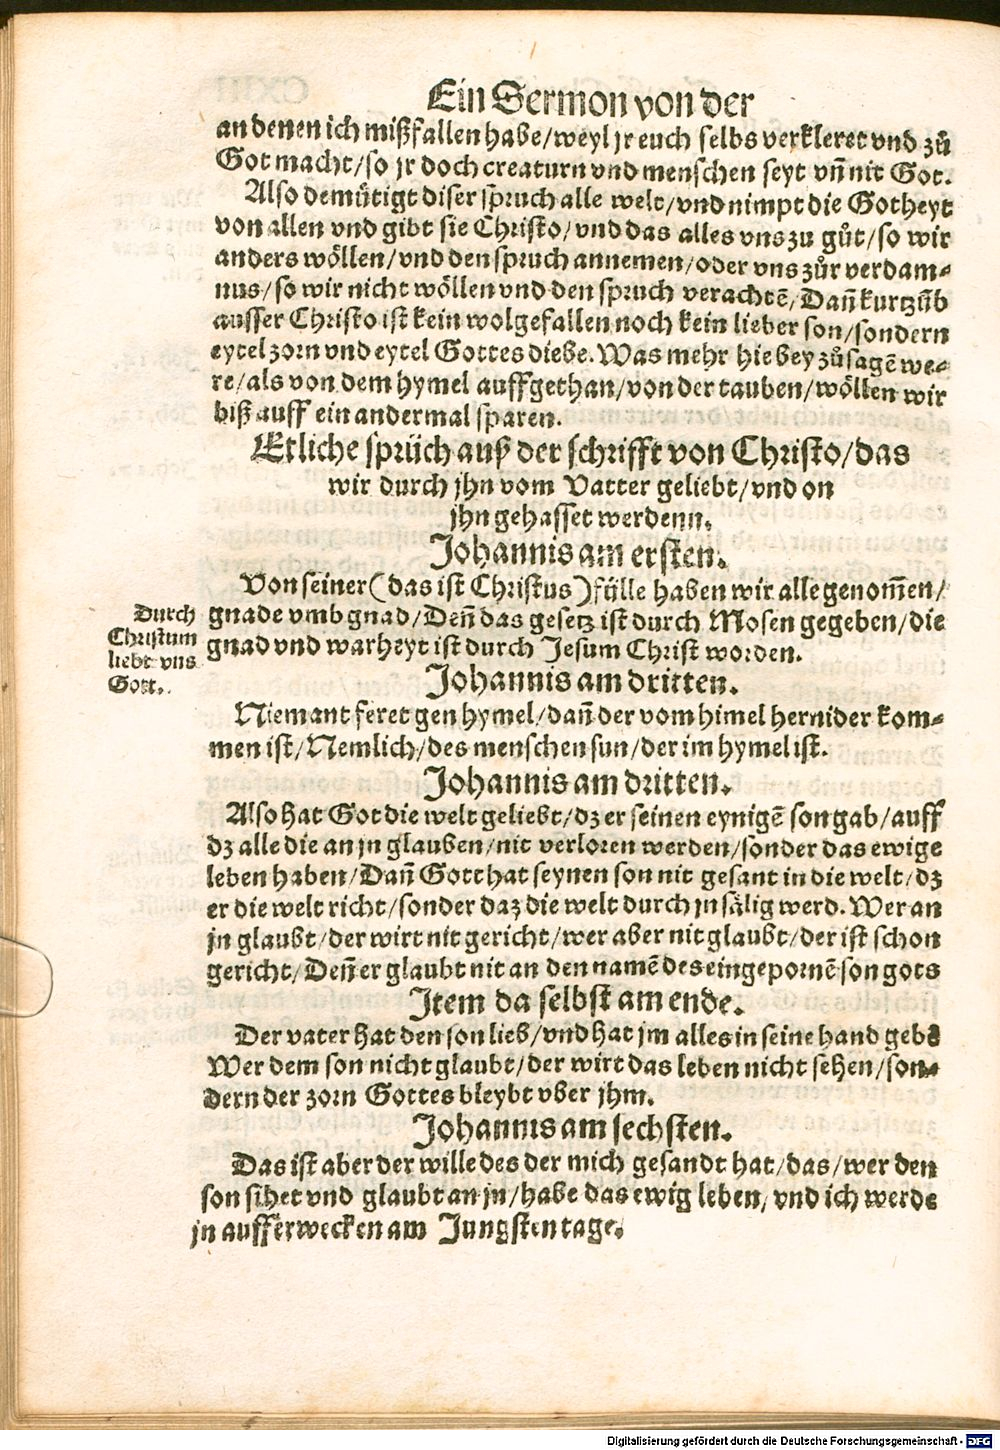 Ein Sermon von der
an denen ich mißfallen habe/weyl jr euch selbs verkleret vnd zů
Got macht/so jr doch creaturn vnd menschen seyt vñ nit Got.
Also demütigt diser spruch alle welt/vnd nimpt die Gotheyt
von allen vnd gibt sie Christo/vnd das alles vns zu gůt/so wir
anders wöllen/vnd den spruch annemen/oder vns zůr verdam-
nus/so wir nicht wöllen vnd den spruch verachtē/Dañ kurtzūb
ausser Christo ist kein wolgefallen noch kein lieber son/sondern
eytel zorn vnd eytel Gottes diebe. Was mehr hie bey zůsagē we-
re/als von dem hymel auffgethan/von der tauben/wöllen wir
biß auff ein andermal sparen.
Etliche sprüch auß der schrifft von Christo/das
wir durch jhn vom Vatter geliebt/vnd on
jhn gehasset werdenn.
Johannis am ersten.
Von seiner (das ist Christus) fülle haben wir alle genom̄en/
gnade vmb gnad/Deñ das gesetz ist durch Mosen gegeben/die
gnad vnd warheyt ist durch Jesum Christ worden.
Durch
Christum
liebt vns
Gott.
Johannis am dritten.
Niemant feret gen hymel/dañ der vom himel hernider kom-
men ist/Nemlich/des menschen sun/der im hymel ist.
Johannis am dritten.
Also hat Got die welt geliebt/dz er seinen eynigē son gab/auff
dz alle die an jn glauben/nit verloren werden/sonder das ewige
leben haben/Dañ Gott hat seynen son nit gesant in die welt/dz
er die welt richt/sonder daz die welt durch jn sälig werd. Wer an
jn glaubt/der wirt nit gericht/wer aber nit glaubt/der ist schon
gericht/Deñ er glaubt nit an den namē des eingepornē son gots
Item da selbst am ende.
Der vater hat den son lieb/vnd hat jm alles in seine hand gebē
Wer dem son nicht glaubt/der wirt das leben nicht sehen/son-
dern der zorn Gottes bleybt vber jhm.
Johannis am sechsten.
Das ist aber der wille des der mich gesandt hat/das/wer den
son sihet vnd glaubt an jn/habe das ewig leben/vnd ich werde
jn aufferwecken am Jungsten tage.
Digitalisierung gefördert durch die Deutsche Forschungsgemeinschaft - DFG